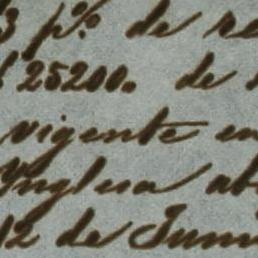 3 p%. de re
25200. de
vigente en
Yglesia ab
12 de Juni